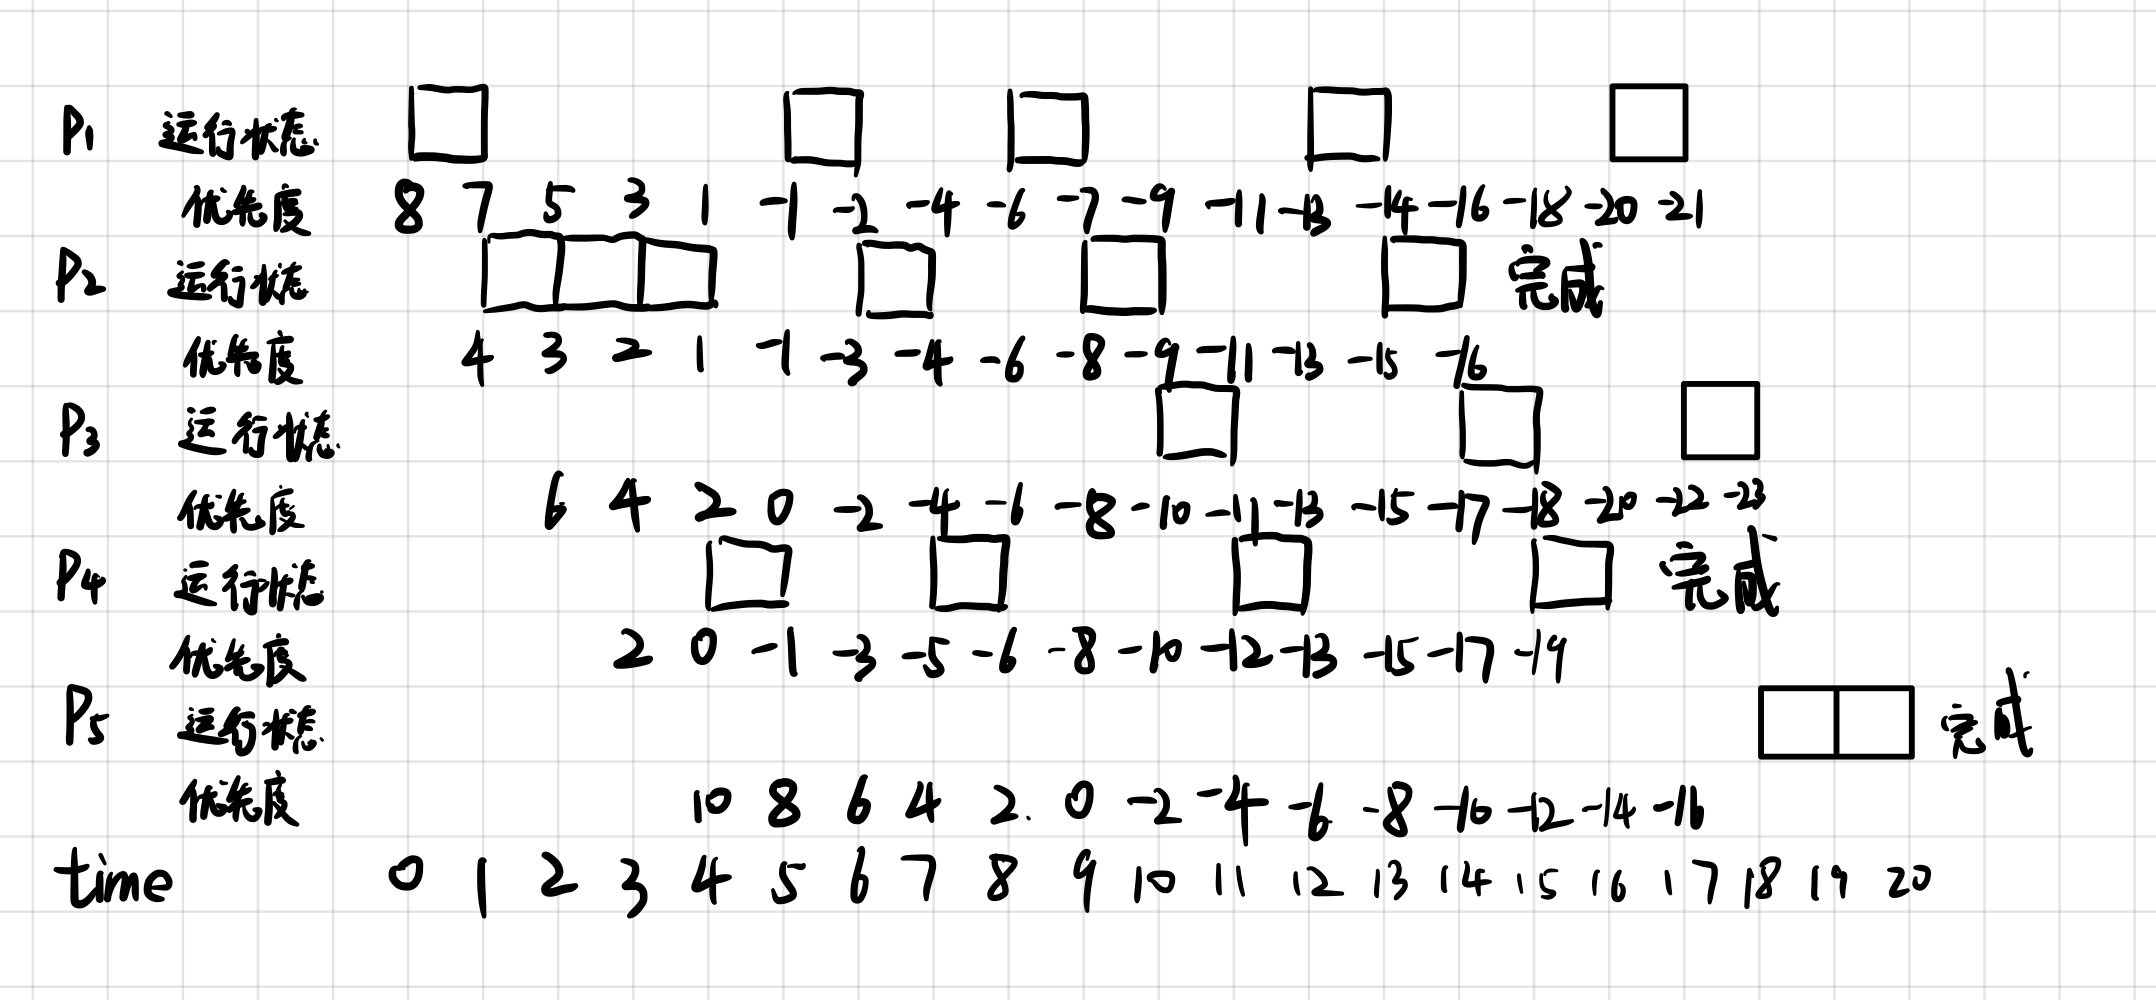 P1 运行状态
优先度 8 7 5 3 1 -1 -2 -4 -6 -7 -9 -11 -13 -14 -16 -18 -20 -21
P2 运行状态 完成
优先度 4 3 2 1 -1 -3 -4 -6 -8 -9 -11 -13 -15 -16
P3 运行状态
优先度 6 4 2 0 -2 -4 -6 -8 -10 -11 -13 -15 -17 -18 -20 -22 -23
P4 运行状态 完成
优先度 2 0 -1 -3 -5 -6 -8 -10 -12 -13 -15 -17 -19
P5 运行状态 完成
优先度 10 8 6 4 2. 0 -2 -4 -6 -8 -10 -12 -14 -16
time 0 1 2 3 4 5 6 7 8 9 10 11 12 13 14 15 16 17 18 19 20